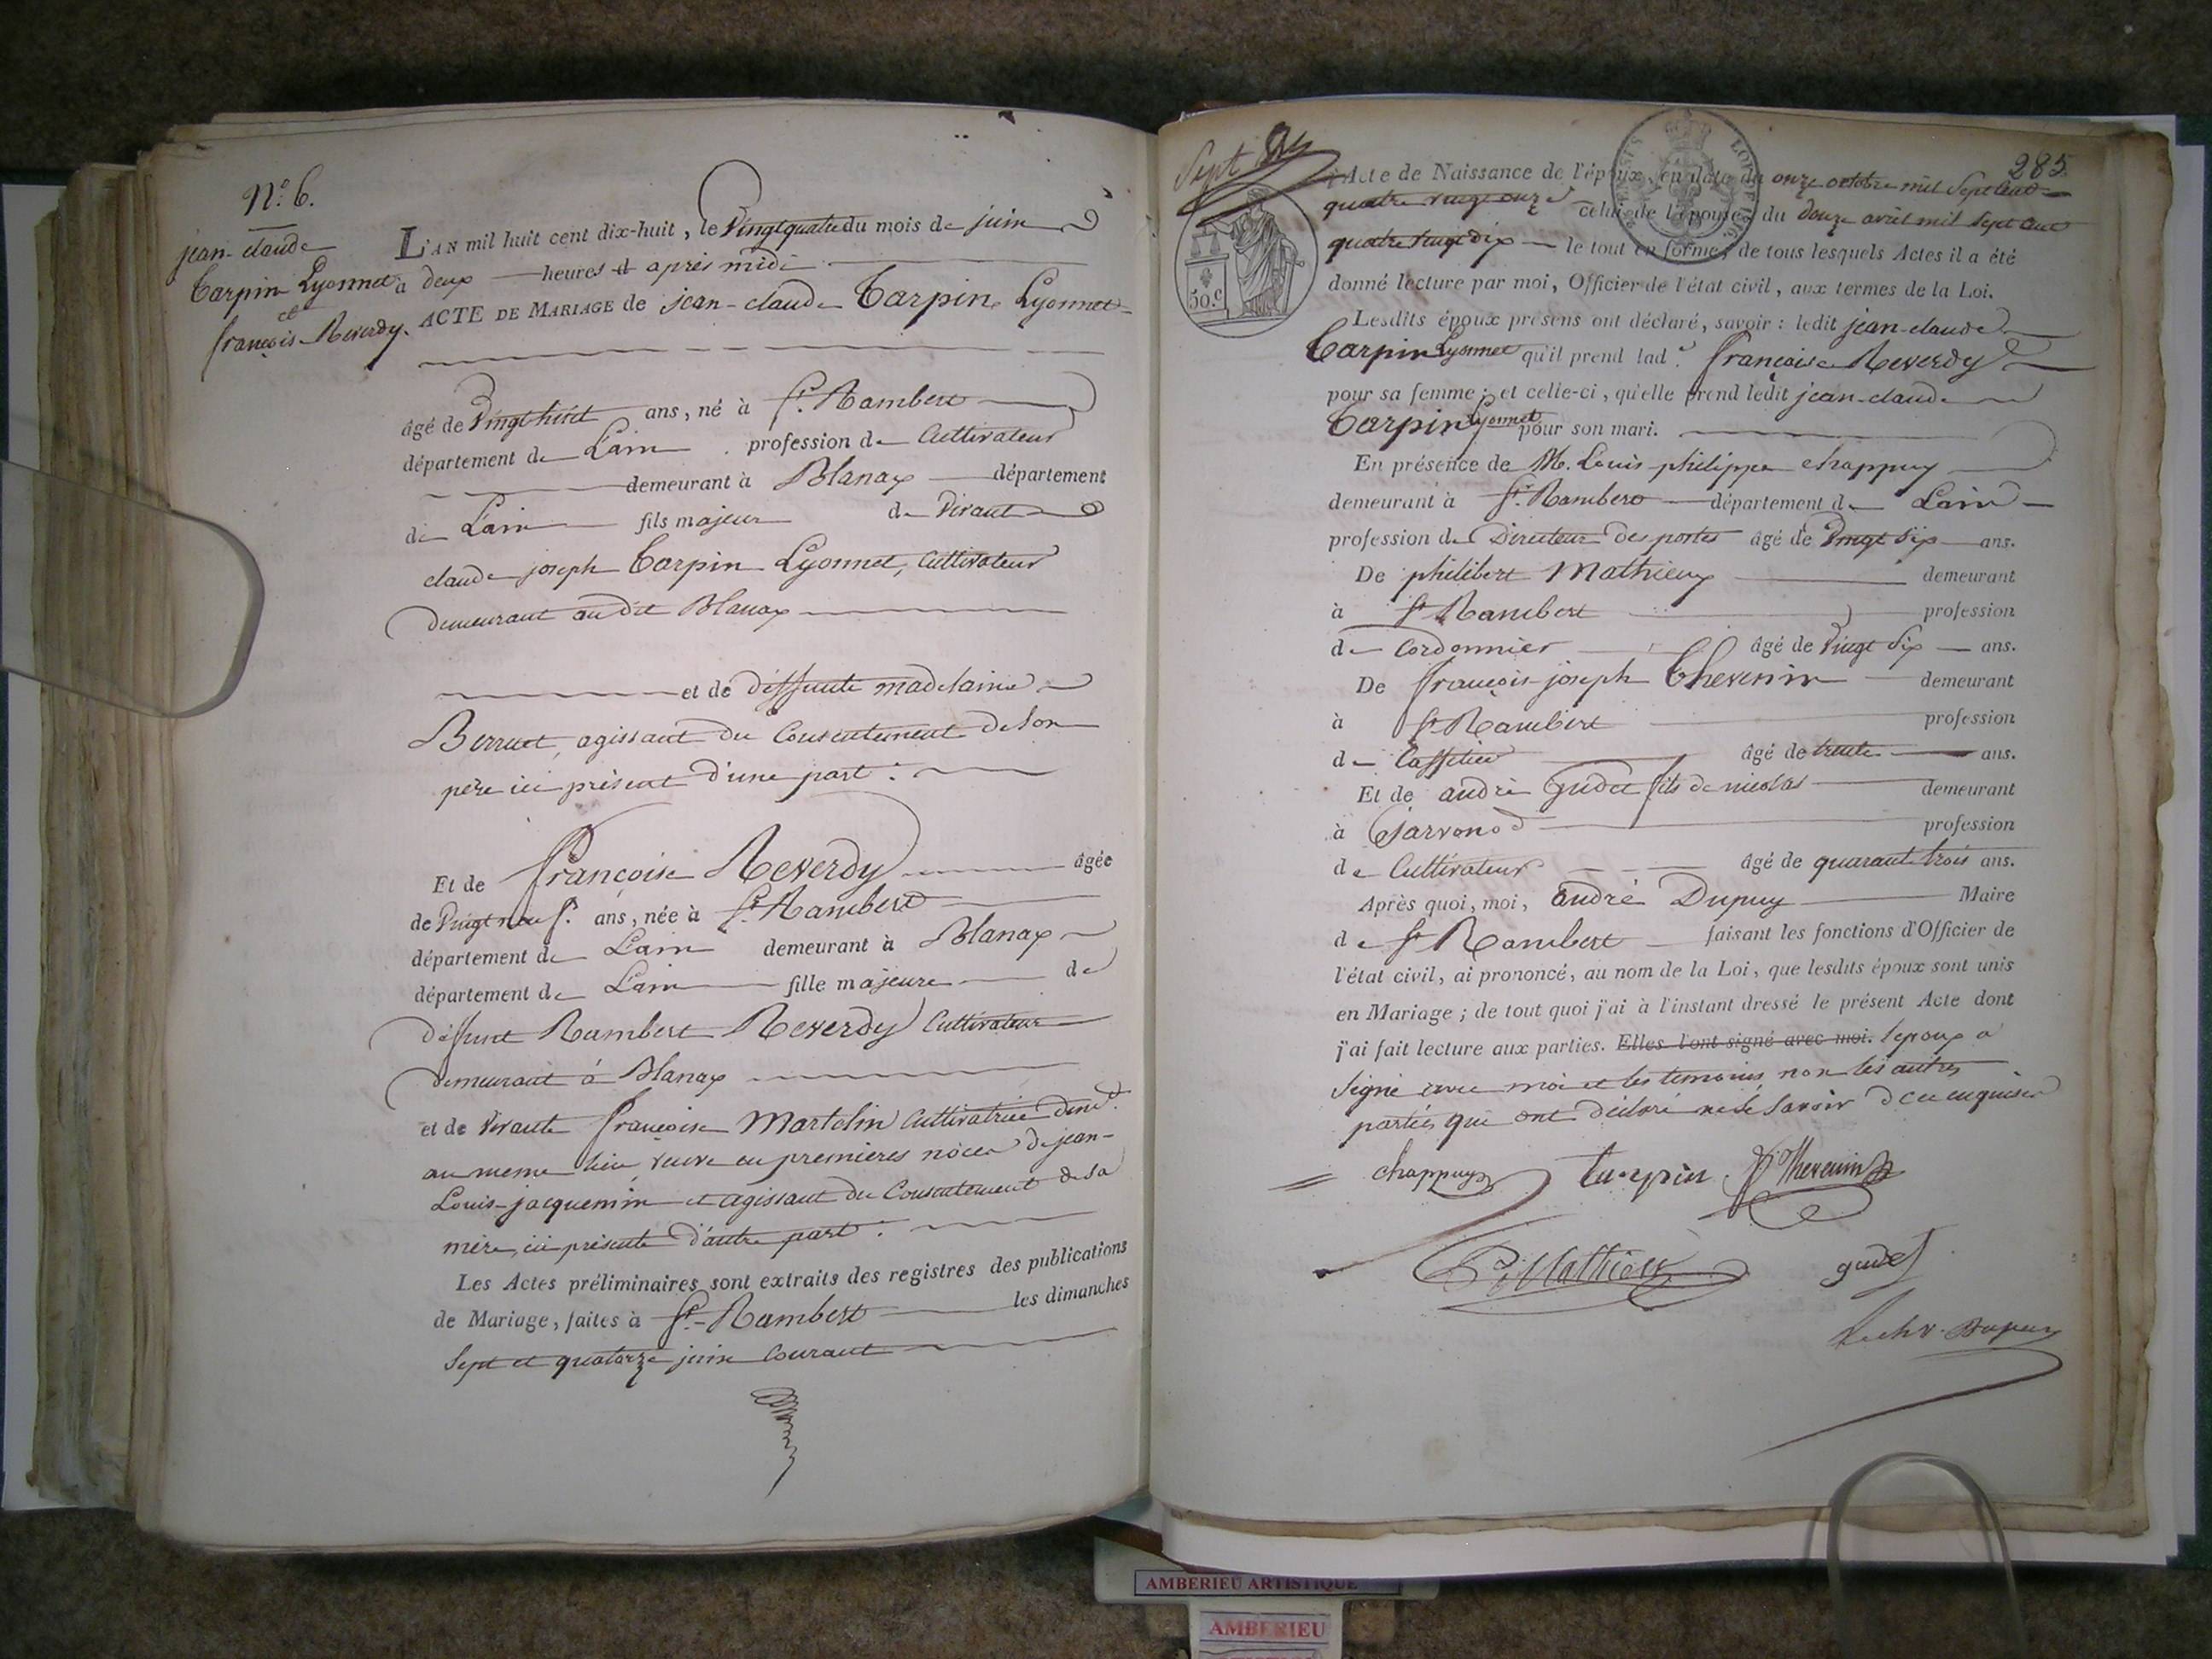 N.º 6.
jean-claude
Carpin Lyonnet
et
françoise Reverdy.
L'AN mil huit cent dix-huit, le Vingtquatre du mois de juin
à deux heures d après midi
ACTE DE MARIAGE de jean-claude Carpin Lyonnet
âgé de Vingt huit ans, né à St. Rambert
département de L'ain profession de Cultivateur
demeurant à Blanaz département
de L'ain fils majeur de vivant
claude joseph Carpin Lyonnet, Cultivateur
demeurant au dit Blanaz
et de deffunte madelaine
Berruet, agissant du Consentement de son
père ici présent d'une part.
Et de françoise Reverdy âgée
de Vingt neuf. ans, née à St. Rambert
département de L'ain demeurant à Blanaz
département de L'ain fille majeure de
deffunt Rambert Reverdy Cultivateur
demeurant à Blanaz
et de vivante françoise Martelin Cultivatrice demt.
au meme lieu, veuve en premières nôces de jean-
Louis-jacquemin et agissant du Consentement de sa
mère, ici présente d'autre part.
Les Actes préliminaires sont extraits des registres des publications
de Mariage, faites à St.-Rambert les dimanches
Sept et quatorze juin Courant
Sept
285
50.c
Acte de Naissance de l'époux, en date du onze octobre mil Sept Cent
quatre vingt onze celui de l'épouse, du douze avril mil Sept Cent
quatre vingt dix le tout en forme; de tous lesquels Actes il a été
donné lecture par moi, Officier de l'état civil, aux termes de la Loi.
Lesdits époux présens ont déclaré, savoir : ledit jean-claude
Carpin Lyonnet qu'il prend lad.e françoise Reverdy
pour sa femme; et celle-ci, qu'elle prend ledit jean-claude
Carpin Lyonnet pour son mari.
En présence de M. Louis philippe chappuy
demeurant à St. Rambert département de L'ain
profession de Directeur des postes âgé de Vingt Six ans.
De philibert Mathieux demeurant
à St Rambert profession
de Cordonnier âgé de Vingt Six ans.
De françois joseph Thevenin demeurant
à St Rambert profession
de Caffetier âgé de trente ans.
Et de andré Gudet fils de nicolas demeurant
à Javornod profession
de Cultivateur âgé de quarante trois ans.
Après quoi, moi, andré Dupuy Maire
de St Rambert faisant les fonctions d'Officier de
l'état civil, ai prononcé, au nom de la Loi, que lesdits époux sont unis
en Mariage; de tout quoi j'ai à l'instant dressé le présent Acte dont
j'ai fait lecture aux parties. Elles l'ont signé avec moi. l'epoux a
Signé avec moi et les temoins, non les autres
parties qui ont déclaré ne le Savoir de ce enquises
chappuy turpin Thevenin
P. Mathieu gudet
Le chr. Dupuy
AMBERIEU ARTISTIQUE
AMBERIEU